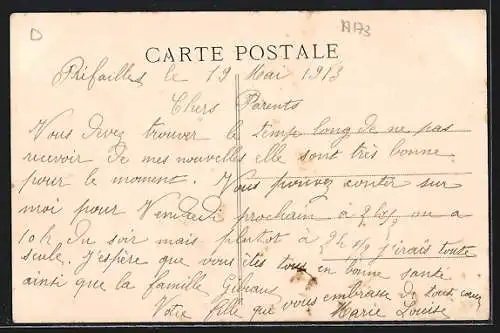 D
CARTE POSTALE
Préfailles le 19 Mai 1913
Chers Parents
Vous devez trouver le temps long de ne pas
recevoir de mes nouvelles elle sont très bonne
pour le moment. Vous pouvez conter sur
moi pour Vendredi prochain à ou a
10h du soir mais plutôt à j'irais toute
seule. j'espère que vous êtes tous en bonne santé
ainsi que la famille
Votre fille qui vous embrasse de tout cœur
Marie Louise